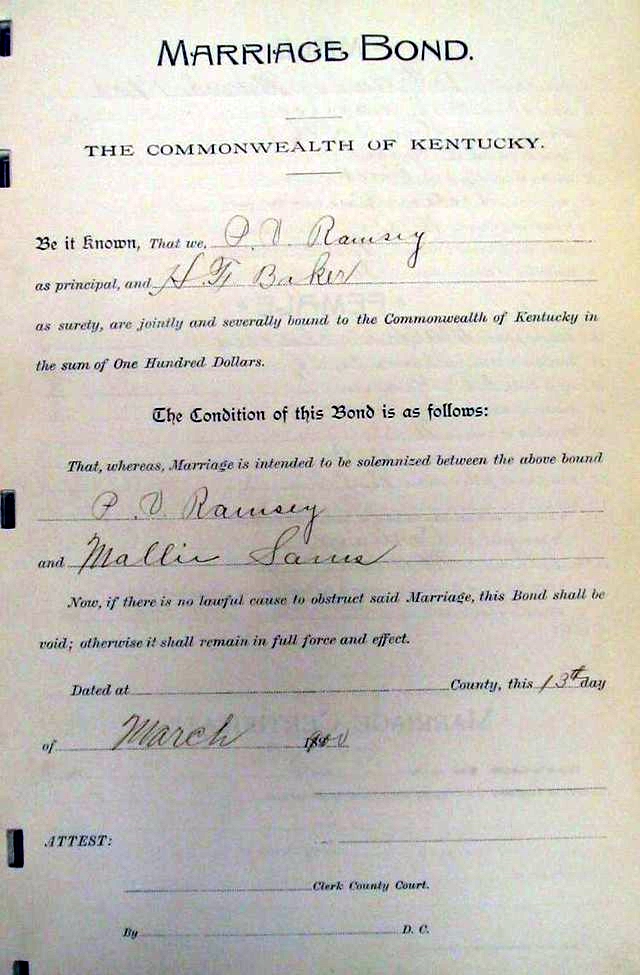 MARRIAGE BOND.
THE COMMONWEALTH OF KENTUCKY.
Be it Known, That we, P. V. Ramsey
as principal, and H. F. Baker
as surety, are jointly and severally bound to the Commonwealth of Kentucky in
the sum of One Hundred Dollars.
The Condition of this Bond is as follows:
That, whereas, Marriage is intended to be solemnized between the above bound
P. V. Ramsey
and Mallie Sams
Now, if there is no lawful cause to obstruct said Marriage, this Bond shall be
void; otherwise it shall remain in full force and effect.
Dated at County, this 13th day
of March 1900
ATTEST:
Clerk County Court.
By D. C.